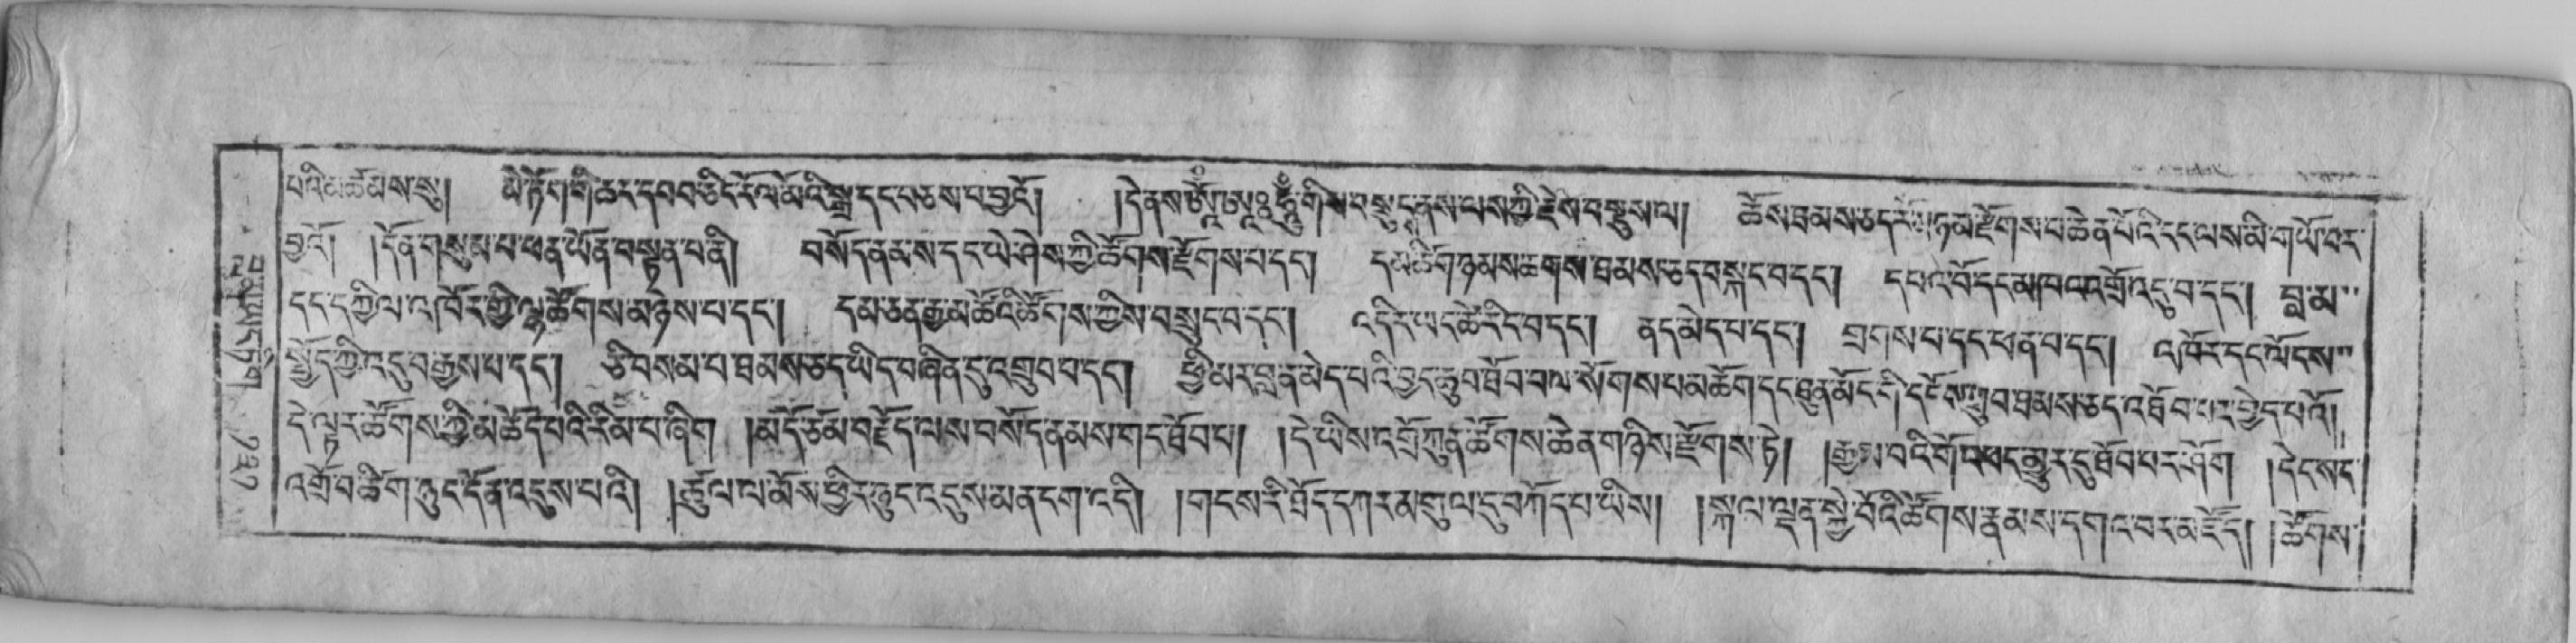 པའི་མཚམས་སུ། མེ་ཏོག་གི་ཆར་དབབ་ཅིང་རོལ་མོའི་སྒྲ་དང་བཅས་པ་བྱའོ། །དེ་ནས་ གིས་བསྡུ་ ནས་ལས་ཀྱི་རྗེས་བསྡུས་ལ། ཆོས་ཐམས་ཅད་ མཉམ་རྫོགས་པ་ཆེན་པོའི་ངང་ལས་མི་གཡོ་བར་
བྱའོ། །དོན་གསུམ་པ་ཕན་ཡོན་བསྟན་པ་ནི། བསོད་ནམས་དང་ཡེ་ཤེས་ཀྱི་ཚོགས་རྫོགས་པ་དང་། དམ་ཚིག་ཉམས་ཆགས་ཐམས་ཅད་བསྐང་བ་དང་། དཔའ་བོ་དང་མཁའ་འགྲོ་འདུ་བ་དང་། བླ་མ་
དང་དཀྱིལ་འཁོར་གྱི་ལྷ་ཚོགས་མཉེས་པ་དང་། དམ་ཅན་རྒྱ་མཚོའི་ཚོགས་ཀྱིས་བསྲུང་བ་དང་། འདིར་ཡང་ཚེ་རིང་བ་དང་། ནད་མེད་པ་དང་། གྲགས་པ་དང་ཕན་བ་དང་། འཁོར་དང་ལོངས་
སྤྱོད་ཀྱི་འདུ་བ་རྒྱས་པ་དང་། ཅི་བསམ་པ་ཐམས་ཅད་ཡིད་བཞིན་དུ་འགྲུབ་པ་དང་། ཕྱི་མར་བླ་ན་མེད་པའི་བྱང་ཆུབ་ཐོབ་པ་ལ་སོགས་པ་མཆོག་དང་ཐུན་མོང་གི་དངོས་གྲུབ་ཐམས་ཅད་འཐོབ་པར་བྱེད་པའོ།
དེ་ལྟར་ཚོགས་ཀྱི་མཆོད་པའི་རིམ་པ་ཞིག །མདོ་ཙམ་བརྗོད་ལས་བསོད་ནམས་གང་ཐོབ་པ། །དེ་ཡིས་འགྲོ་ཀུན་ཚོགས་ཆེན་གཉིས་རྫོགས་ཏེ། །རྒྱལ་བའི་གོ་འཕང་མྱུར་དུ་ཐོབ་པར་ཤོག །དེང་སང་
འགྲོ་བ་ཚིག་ཉུང་དོན་འདུས་པའི། །ཚུལ་ལ་མོས་ཕྱིར་ཉུང་འདུས་མན་དག་འདི། །གངས་རི་ཐོད་དཀར་མགུལ་དུ་བཀོད་པ་ཡིས། །སྐལ་ལྡན་སྐྱེ་བོའི་ཚོགས་རྣམས་དགའ་བར་མཛོད། །ཚོགས་